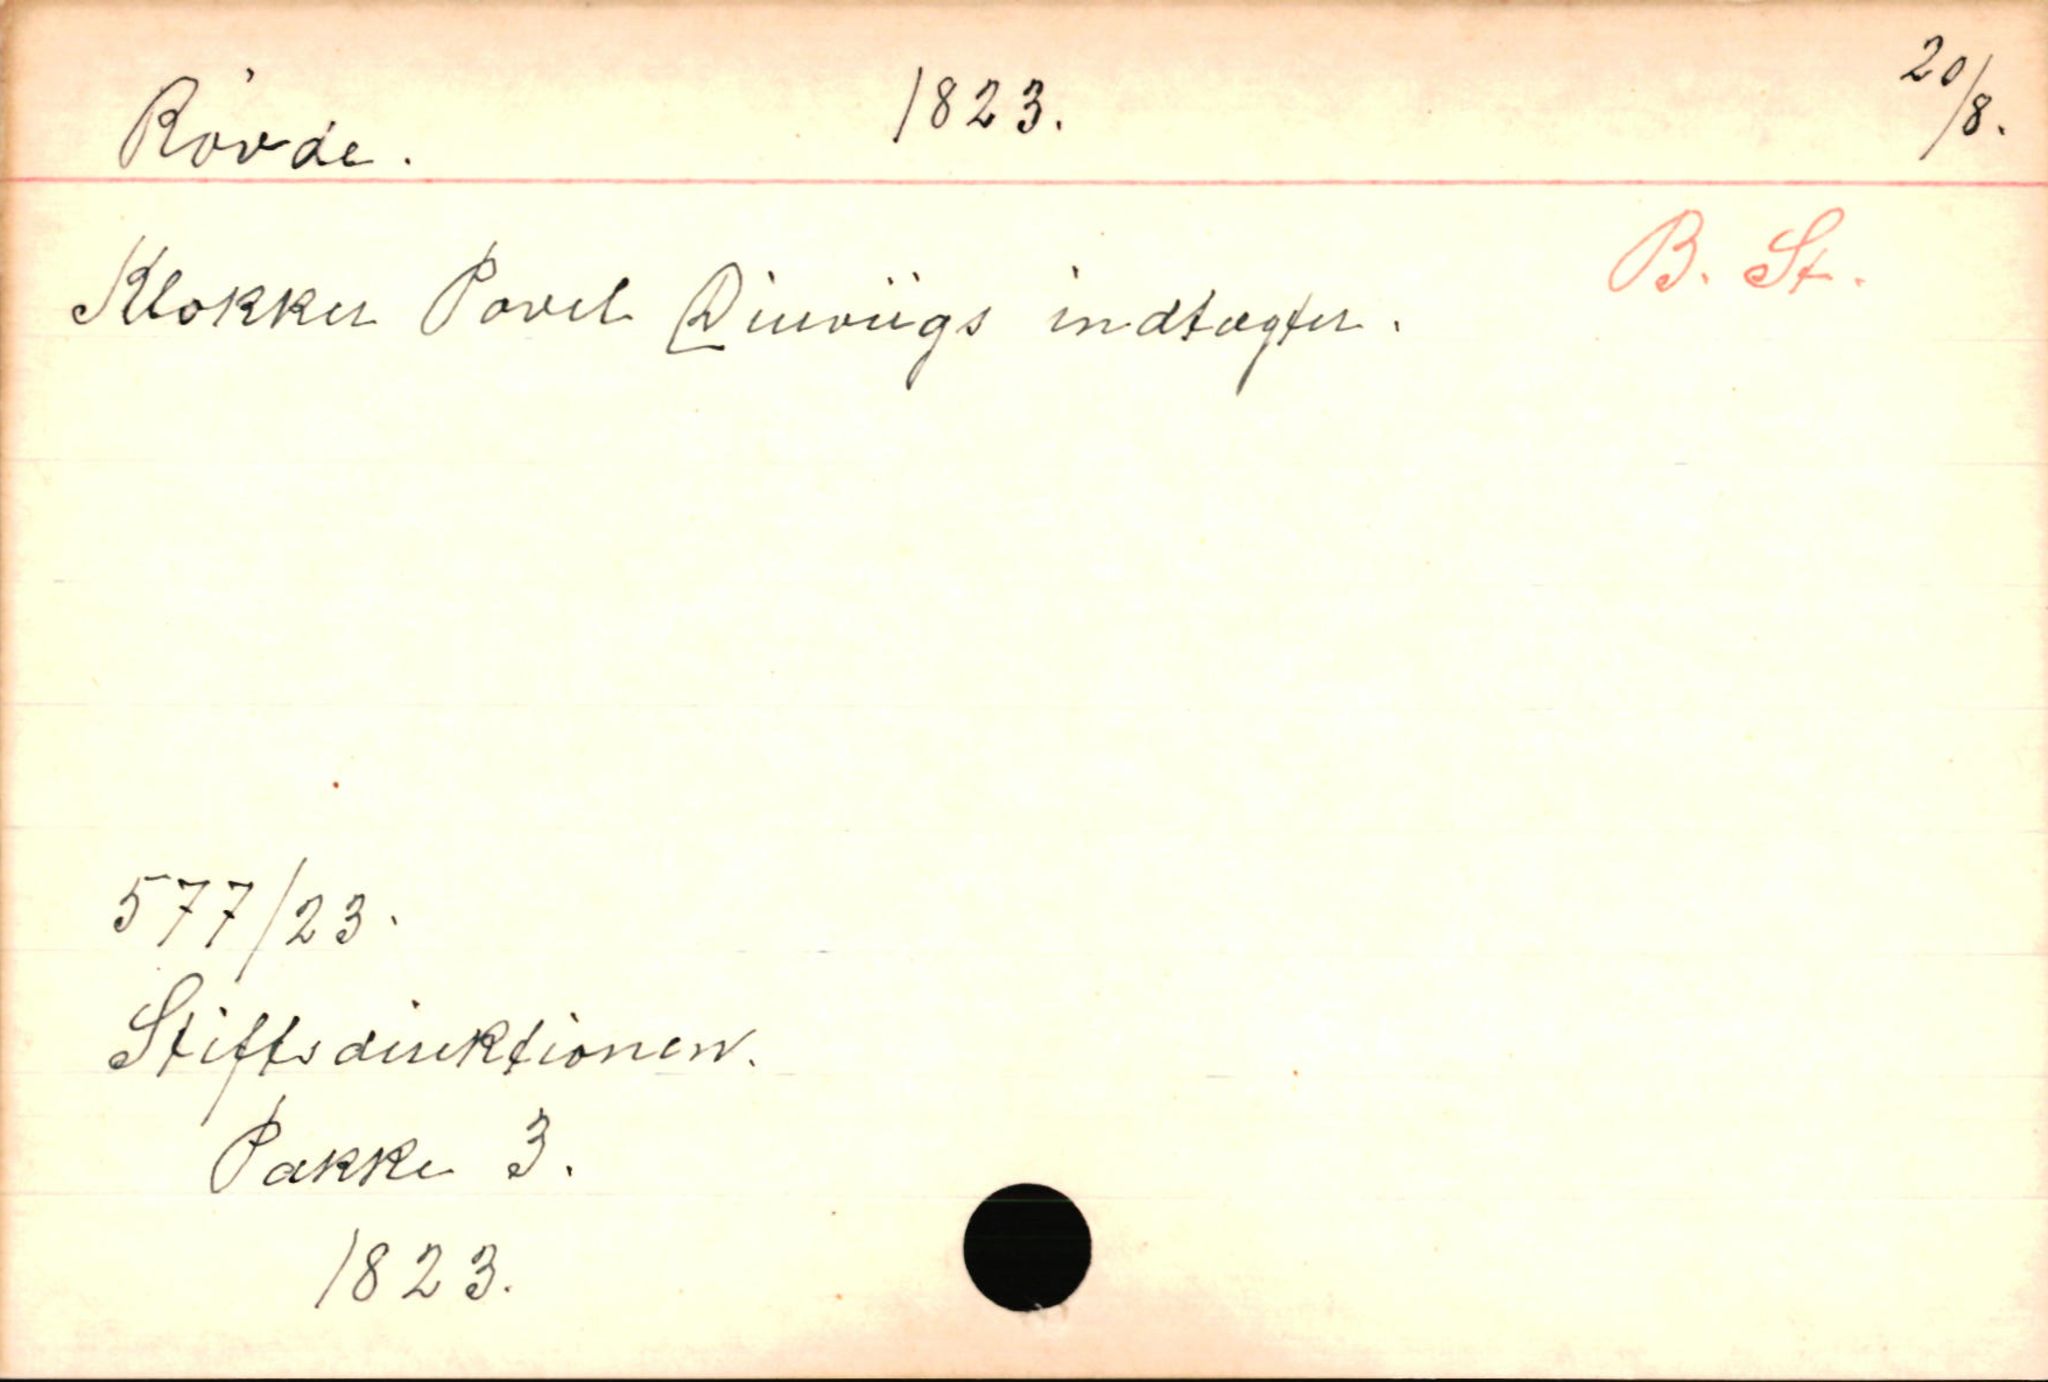 Rovde. 1823. 20/8.
B. St.
Klokker Povel indtægter.
577/23.
Stiftsdirektionen.
Pakke 3.
1823.